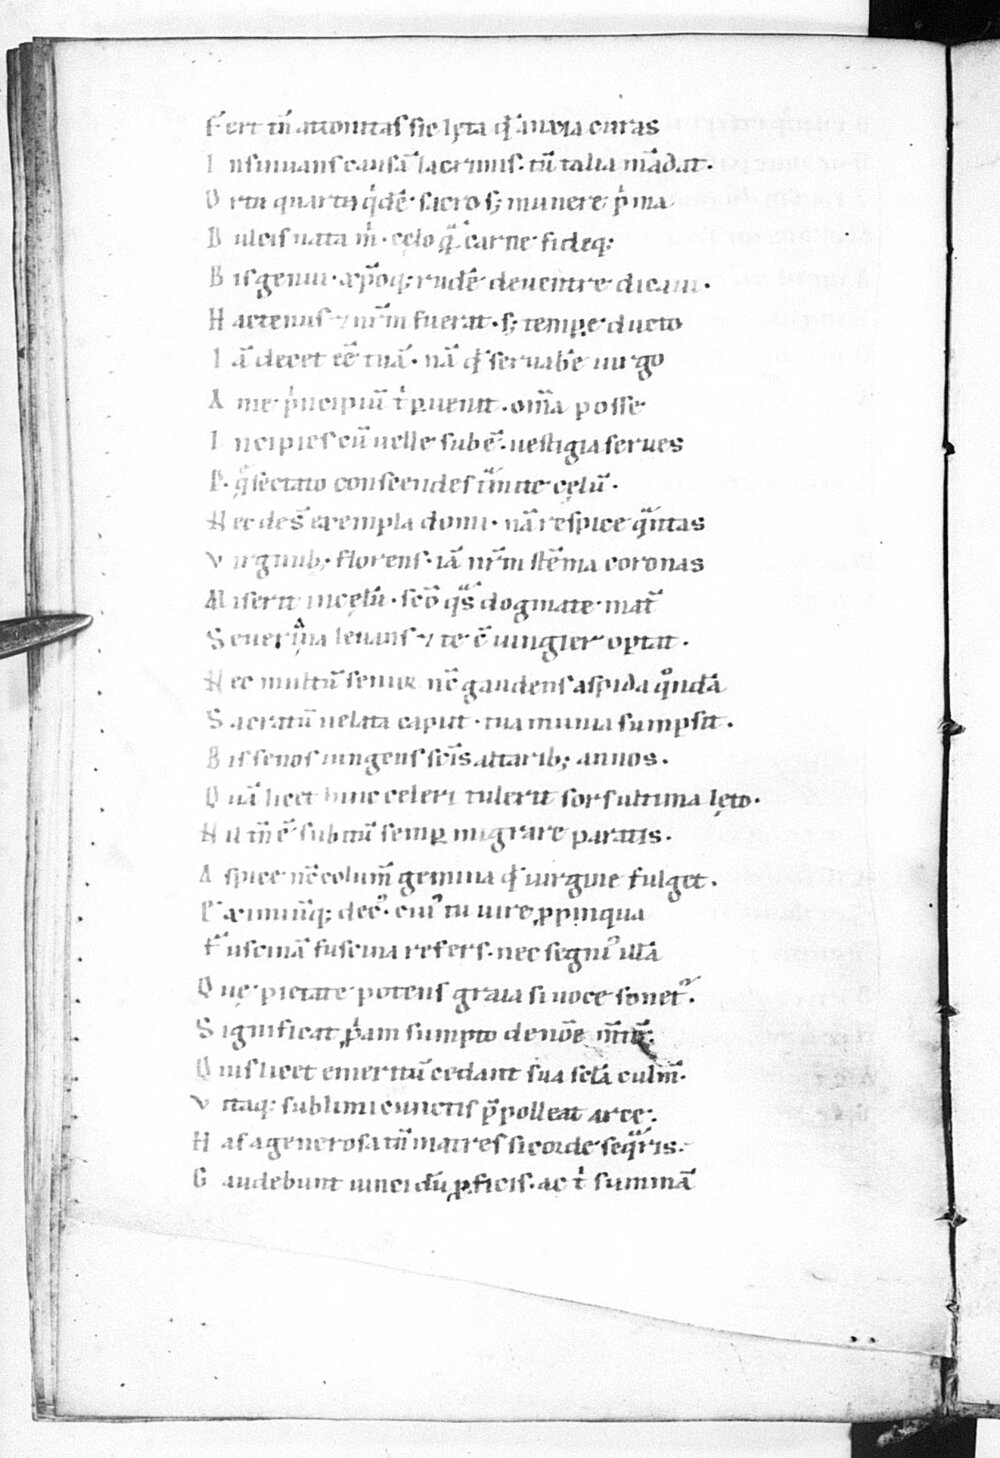 Fert tm̄ attonitas sic lęta qđ anxia curas
Insinuans causā lacrimis. tū talia mādat.
Ortu quartū qⁱdē sacro s; munere pⁱma
Dulcis nata mⁱ. cęlo q̄ carne fideq;
Bis genui. rudē de uentre dicaui.
Hactenus ⁊ nr̄m fuerat. s; tempe ducto
Iā decet eē tuā. nā qđ seruabē uirgo
A me pⁱncipiū tⁱ puenit. om̄ia posse
Incipies cū uelle sub ē. uestigia serues
conscendes limite cęlū.
Hec des exempla domi. nā respice q̄ntas
Virginib; florens. iā nr̄m stēma coronas
Miserit in cęlū. scō dogmate mat̄
Seuerina leuans ⁊ te ē uingier optat.
Hec multū senior nē gaudens aspida qͦndā
Sacratū uelata caput. tua munia sumpsit.
Bissenos iungens scīs altarib; annos.
Quā licet hinc celeri tulerit sors ultima lęto.
Nil m̄ ē subitū semp migrare paratis.
Aspice nē colum̄ gemina qđ uirgine fulget.
deč. cuiꝰ tu uire ppinqua
Fuscinā fuscina refers. nec segniꝰ illā
Que pietate potens graia si uoce sonet᷑.
Significat ppam sumpto de noīe
Quis licet emeritū cedant sua sc̄la culm̄.
Vitaq; sublimi cunctis p̄polleat arce.
Has a generosa tū matres si corde seq̄ris.
Gaudebunt uinci dū pficis. ac tⁱ summā